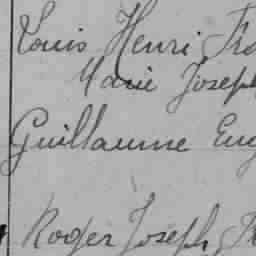 Louis Henri Fra
Marie Joseph
Guillaume Eug
Roger Joseph Fr